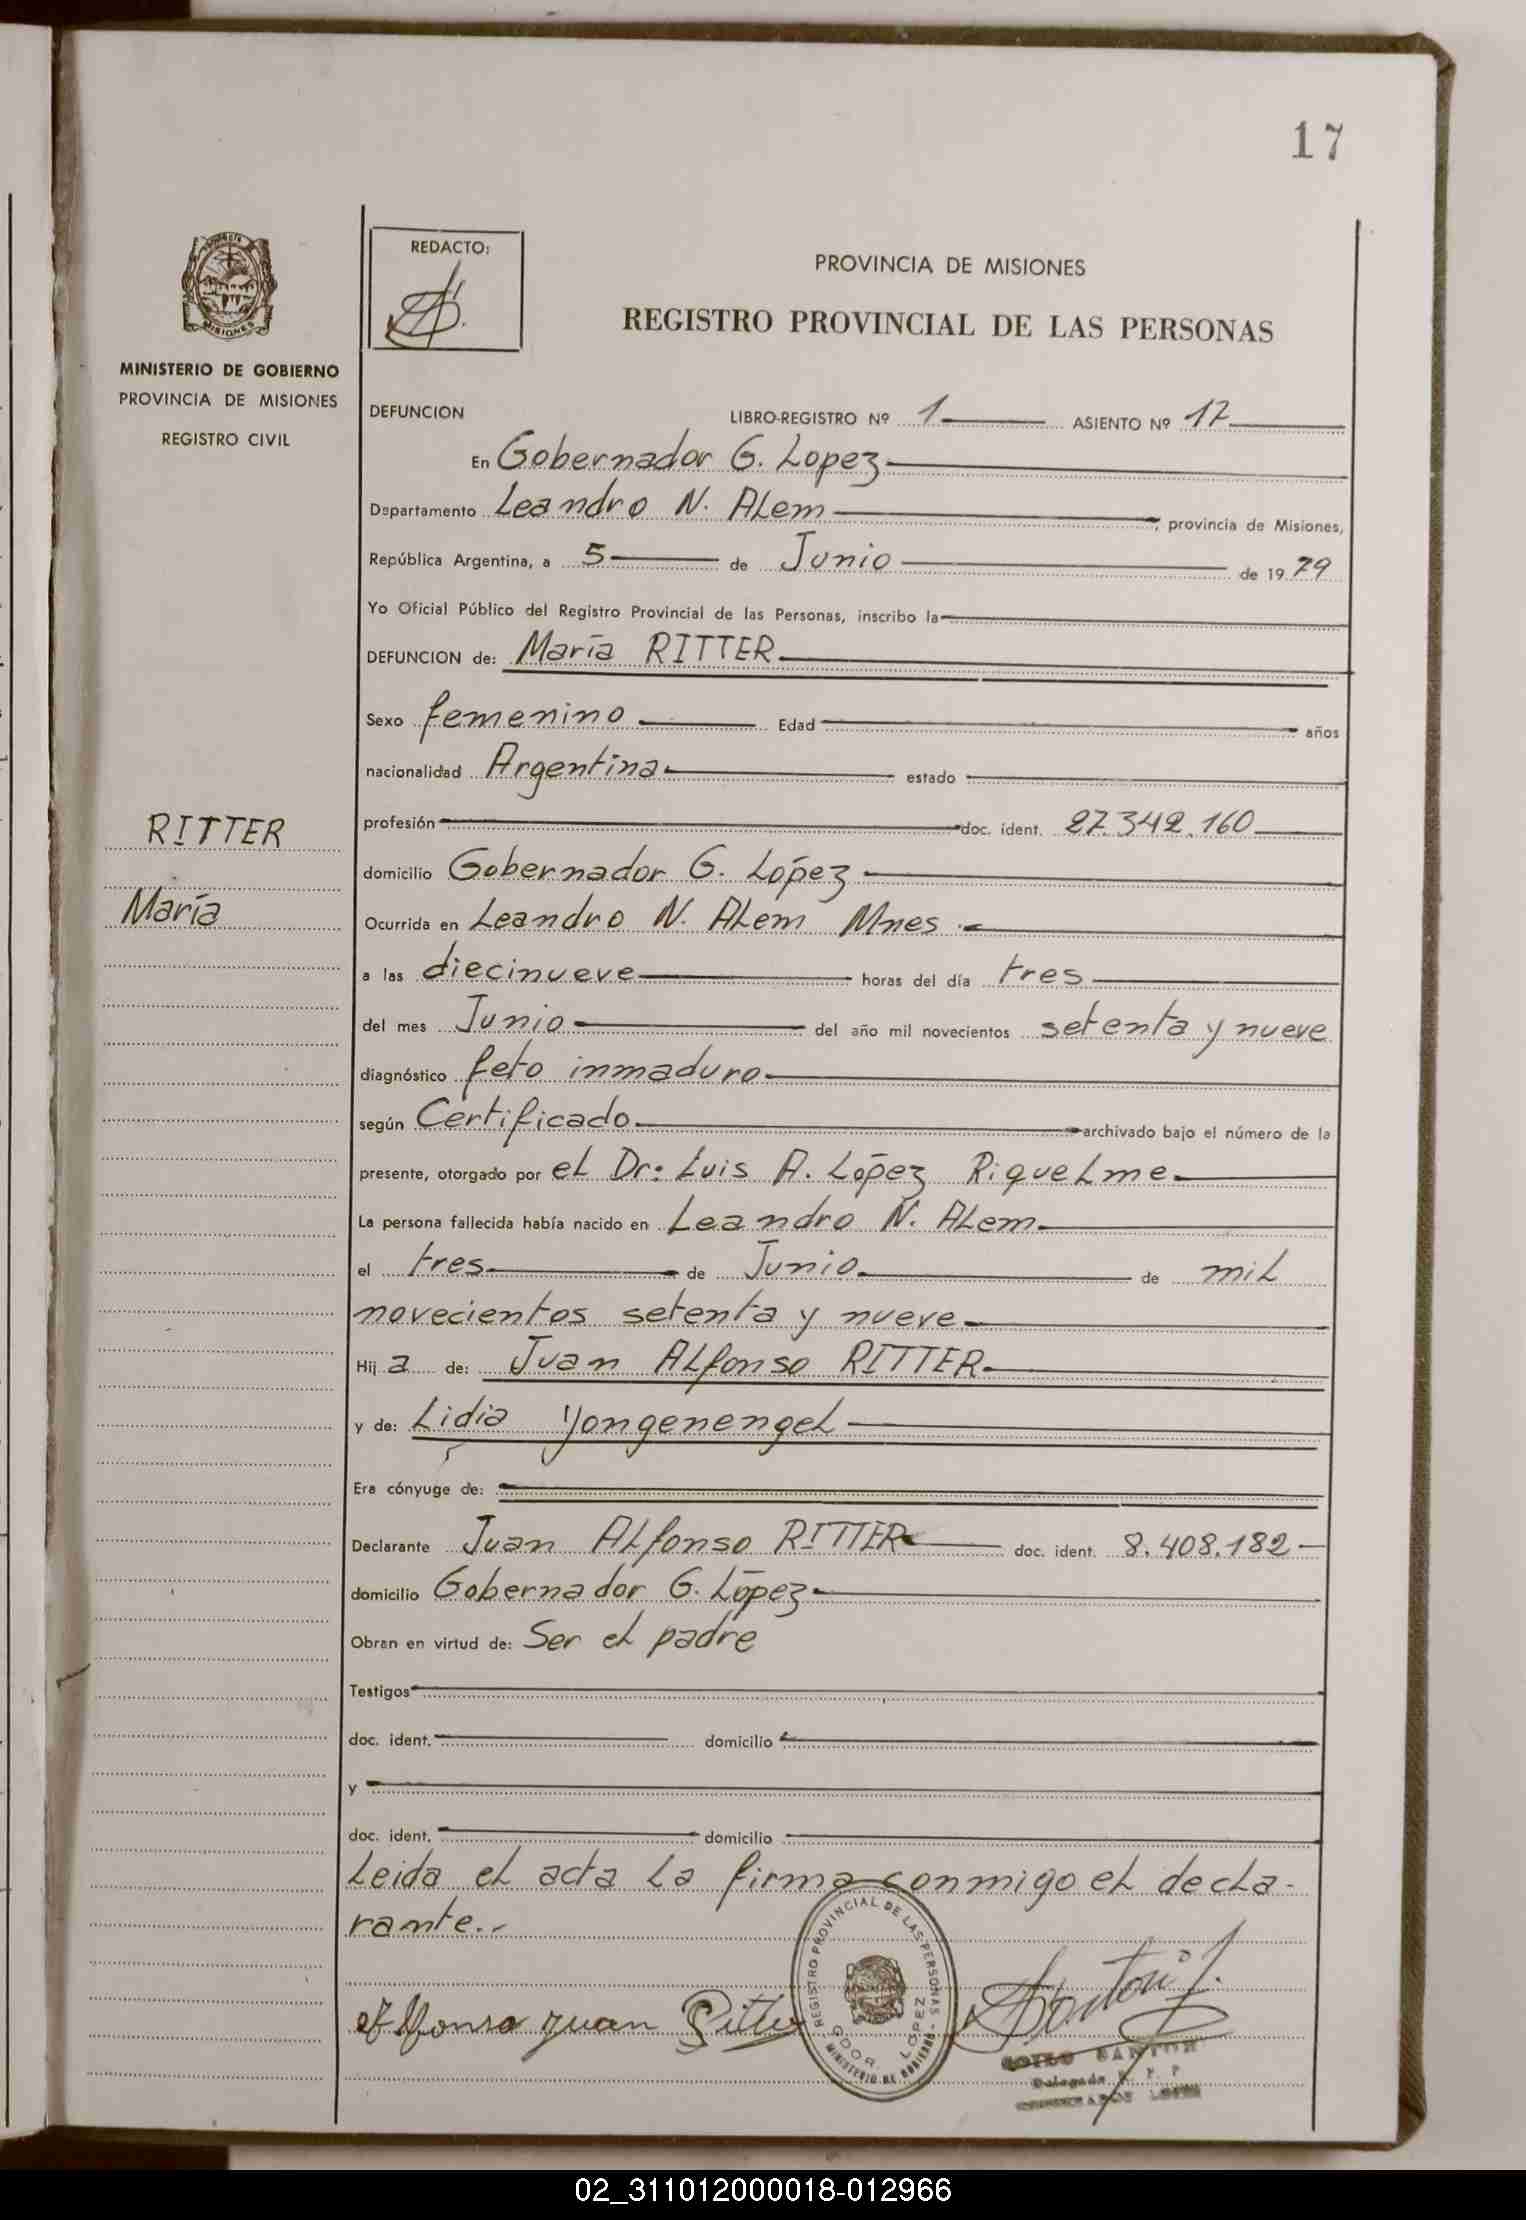 17
REDACTO:
PROVINCIA DE MISIONES
REGISTRO PROVINCIAL DE LAS PERSONAS
MISIONES
MINISTERIO DE GOBIERNO
PROVINCIA DE MISIONES
REGISTRO CIVIL
DEFUNCION LIBRO-REGISTRO Nº 1 ASIENTO Nº 17
En Gobernador G. Lopez
Departamento Leandro N. ALem, provincia de Misiones,
República Argentina, a 5 de Junio de 1979
Yo Oficial Público del Registro Provincial de las Personas, inscribo la
DEFUNCION de: María RITTER
Sexo femenino Edad años
nacionalidad Argentina estado
profesión doc. ident. 27.342.160
RITTER
María
domicilio Gobernador G. López
Ocurrida en Leandro N. ALem Mnes.
a las diecinueve horas del día tres
del mes Junio del año mil novecientos setenta y nueve
diagnóstico feto inmaduro
según Certificado archivado bajo el número de la
presente, otorgado por el Dr: Luis A. López RiqueLme
La persona fallecida había nacido en Leandro N. ALem
el tres de Junio de mil
novecientos setenta y nueve
Hij a de: Juan ALfonso RITTER
y de: Lidia Yongenengel
Era cónyuge de:
Declarante Juan ALfonso RITTER doc. ident. 8.408.182
domicilio Gobernador G. López
Obran en virtud de: Ser el padre
Testigos
doc. ident. domicilio
y
doc. ident. domicilio
Leida el acta la firma conmigo el decla-
rante.-
Alfonso Juan Ritter
REGISTRO PROVINCIAL DE LAS PERSONAS
GDOR. LOPEZ
MINISTERIO DE GOBIERNO
Delegado
02_311012000018-012966